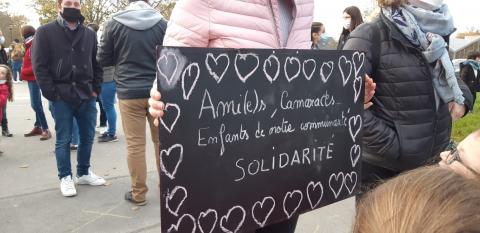 Ami(e)s, Camarades
Enfants de notre communauté
SOLIDARITÉ